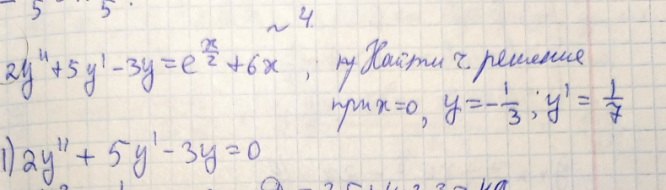 5 5.
~ 4.
2y'' + 5y' - 3y = e^{x/2} + 6x, Найти ч. решение
при x=0, y = -1/3; y' = 1/7
1) 2y'' + 5y' - 3y = 0